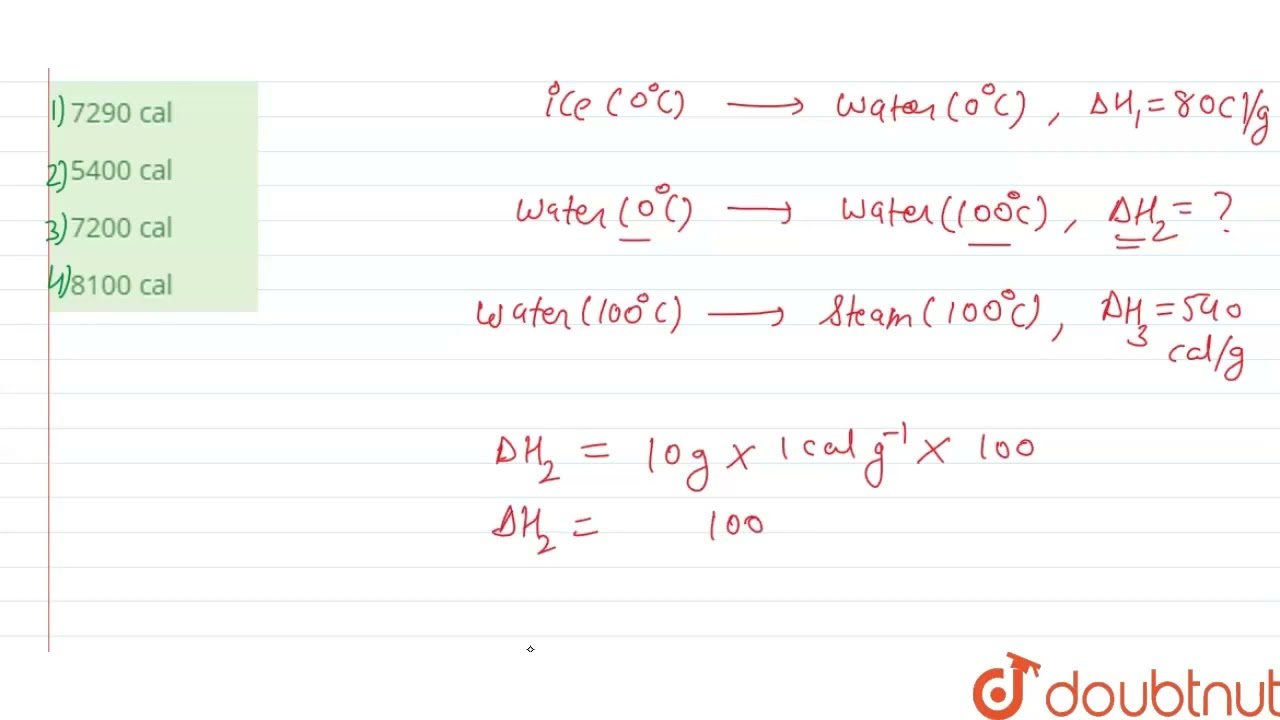 1) 7290 cal
2) 5400 cal
3) 7200 cal
4) 8100 cal
ice (0°C) ⟶ water (0°C), ΔH₁ = 80 C/g
water (0°C) ⟶ water (100°C), ΔH₂ = ?
water (100°C) ⟶ Steam (100°C), ΔH₃ = 540
cal/g
ΔH₂ = 10g × 1 cal g⁻¹ × 100
ΔH₂ = 100
doubtnut